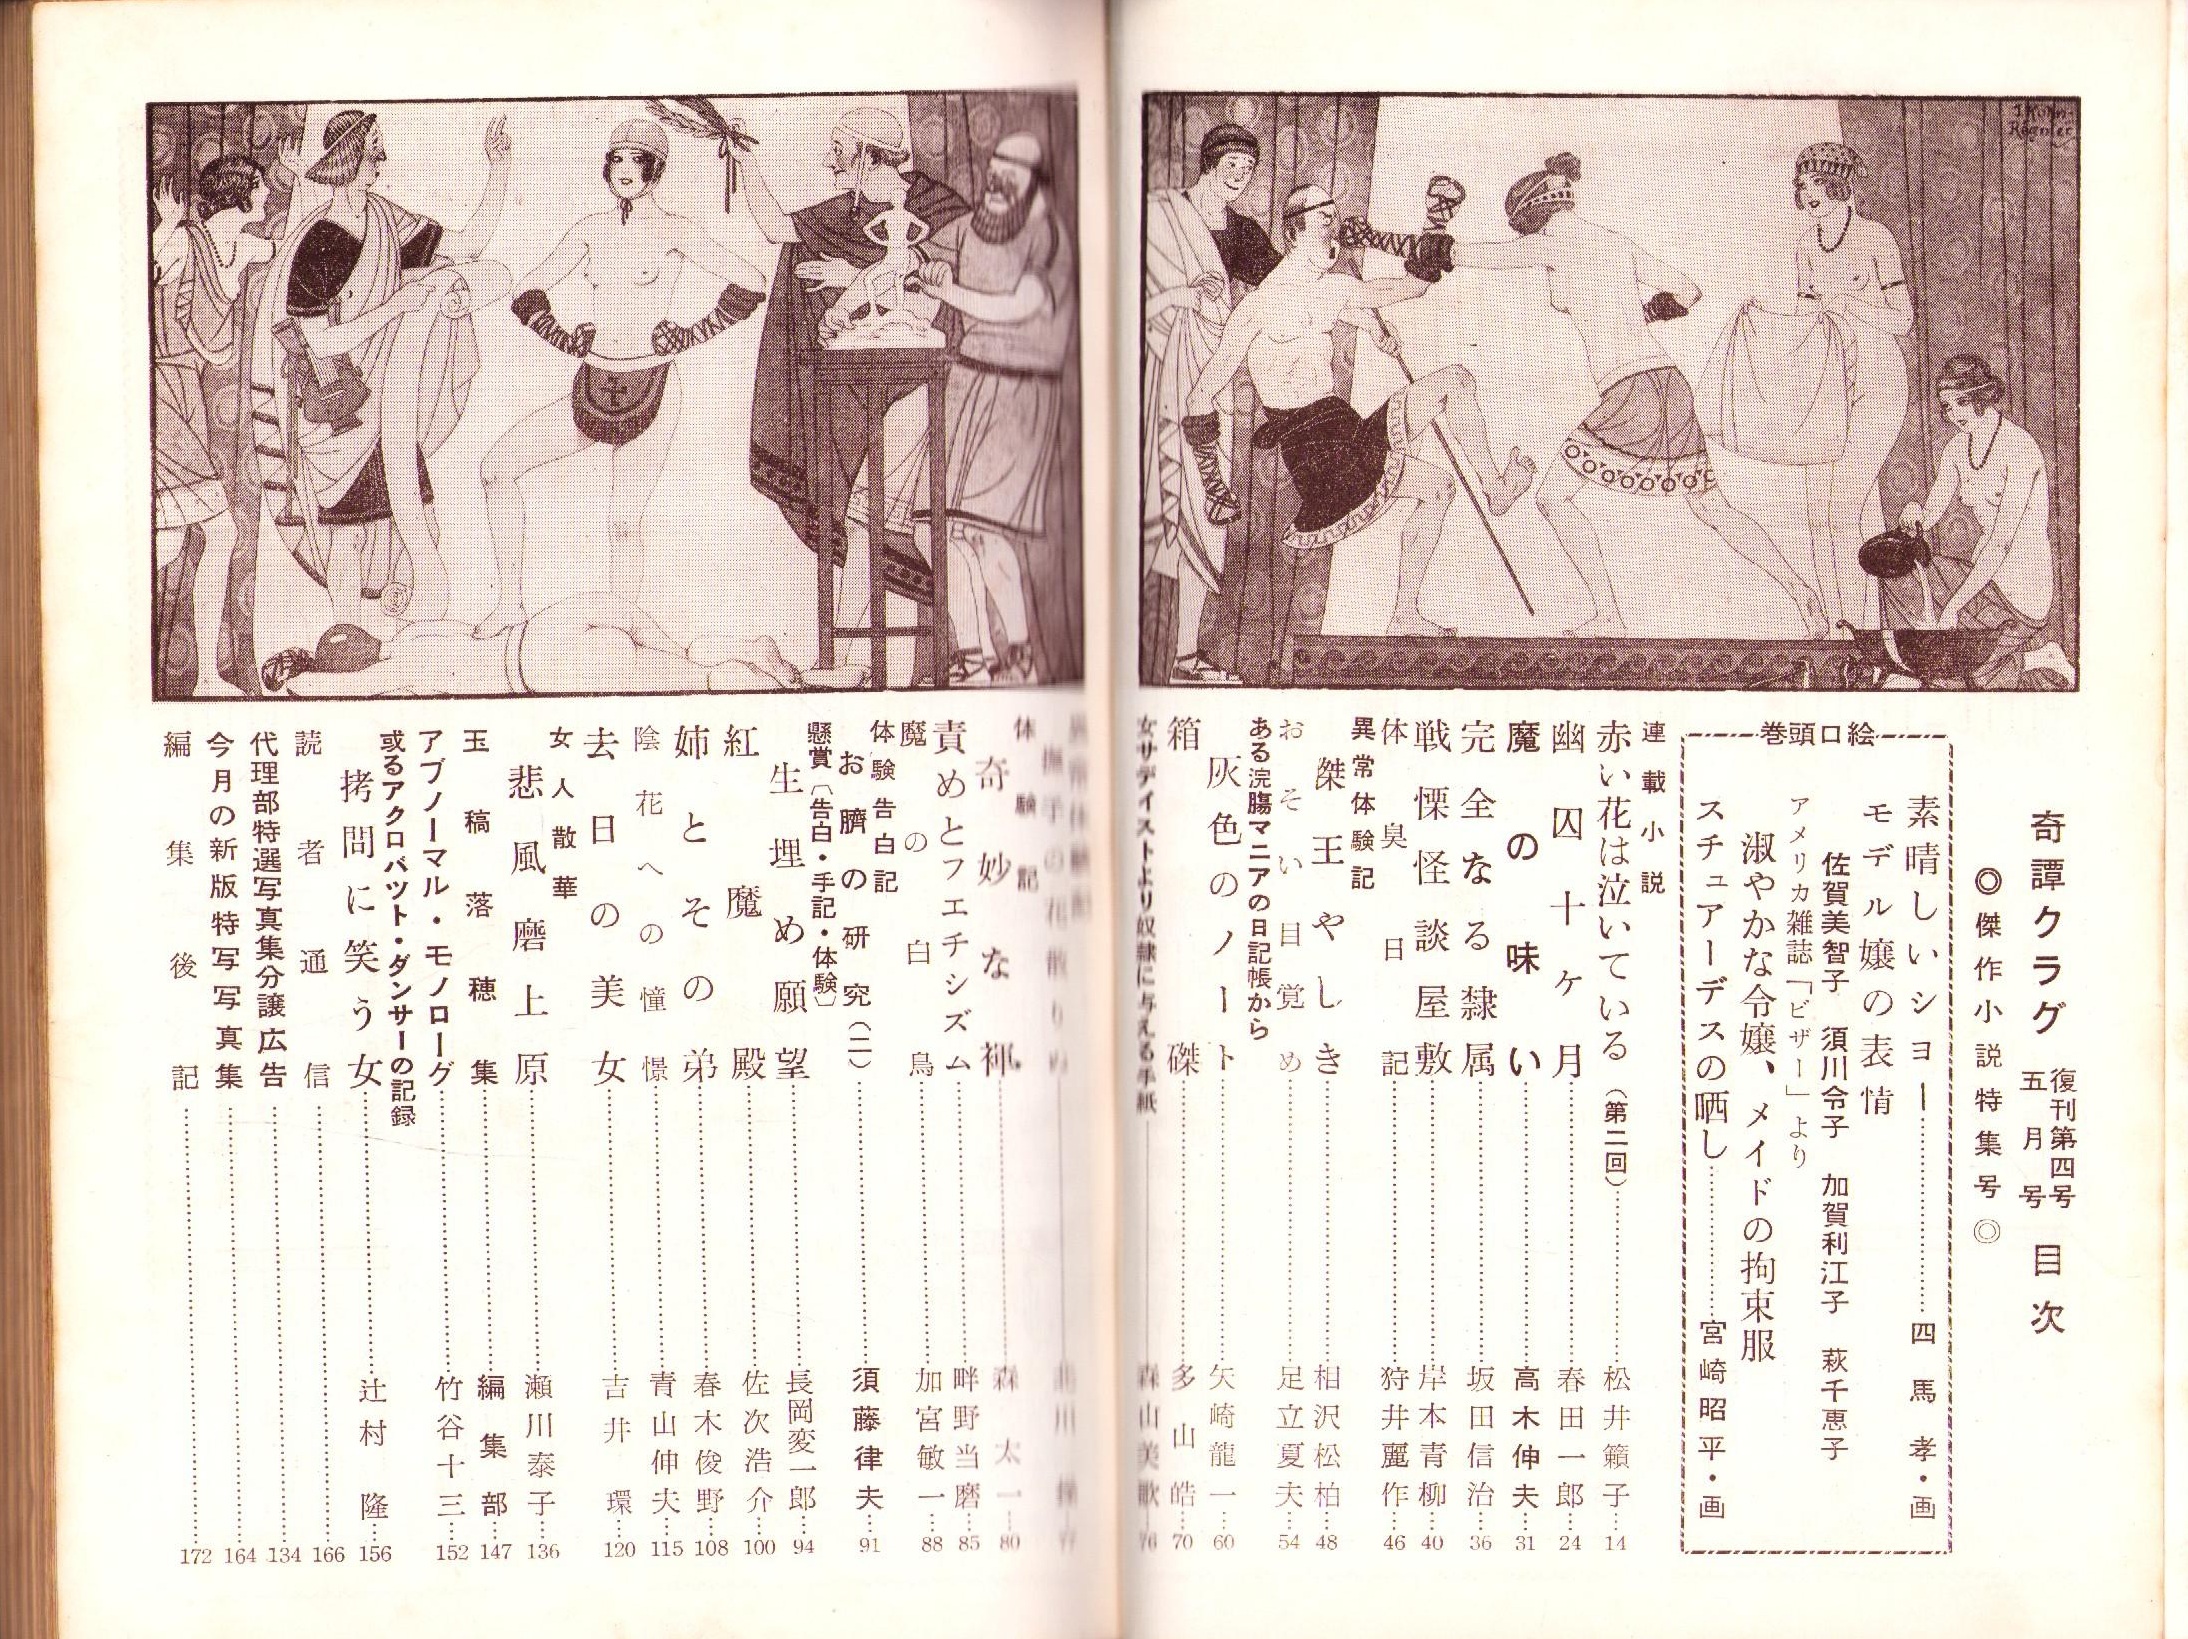 J. Kuhn-
Régnier
奇譚クラグ 復刊第四号 五月号 目次
◎傑作小説特集号◎
巻頭口絵
素晴しいショー……四馬孝・画
モデル嬢の表情
佐賀美智子 須川令子 加賀利江子 萩千恵子
アメリカ雑誌「ビザー」より
淑やかな令嬢、メイドの拘束服
スチュアーデスの晒し……宮崎昭平・画
連載小説
赤い花は泣いている(第二回)……松井籟子…14
幽囚十ヶ月……春田一郎…24
魔の味い……高木伸夫…31
完全なる隷属……坂田信治…36
戦慄怪談屋敷……岸本青柳…40
体臭日記……狩井麗作…46
異常体験記
傑王やしき……相沢松柏…48
おそい目覚め……足立夏夫…54
ある浣腸マニアの日記帳から
灰色のノート……矢崎龍一…60
箱磔……多山皓…70
女サディストより奴隷に与える手紙……森山美歌…76
撫子の花散りぬ……北川…77
体験記
奇妙な褌……森太一…80
責めとフェチシズム……畔野当磨…85
魔の白鳥……加宮敏一…88
体験告白記
お臍の研究(二)……須藤律夫…91
懸賞〔告白・手記・体験〕
生埋め願望……長岡変一郎…94
紅魔殿……佐次浩介…100
姉とその弟……春木俊野…108
陰花への憧憬……青山伸夫…115
去日の美女……吉井環…120
女人散華
悲風磨上原……瀬川泰子…136
玉稿落穂集……編集部…147
アブノーマル・モノローグ……竹谷十三…152
或るアクロバット・ダンサーの記録
拷問に笑う女……辻村隆…156
読者通信……166
代理部特選写真集分譲広告……134
今月の新版特写写真集……164
編集後記……172